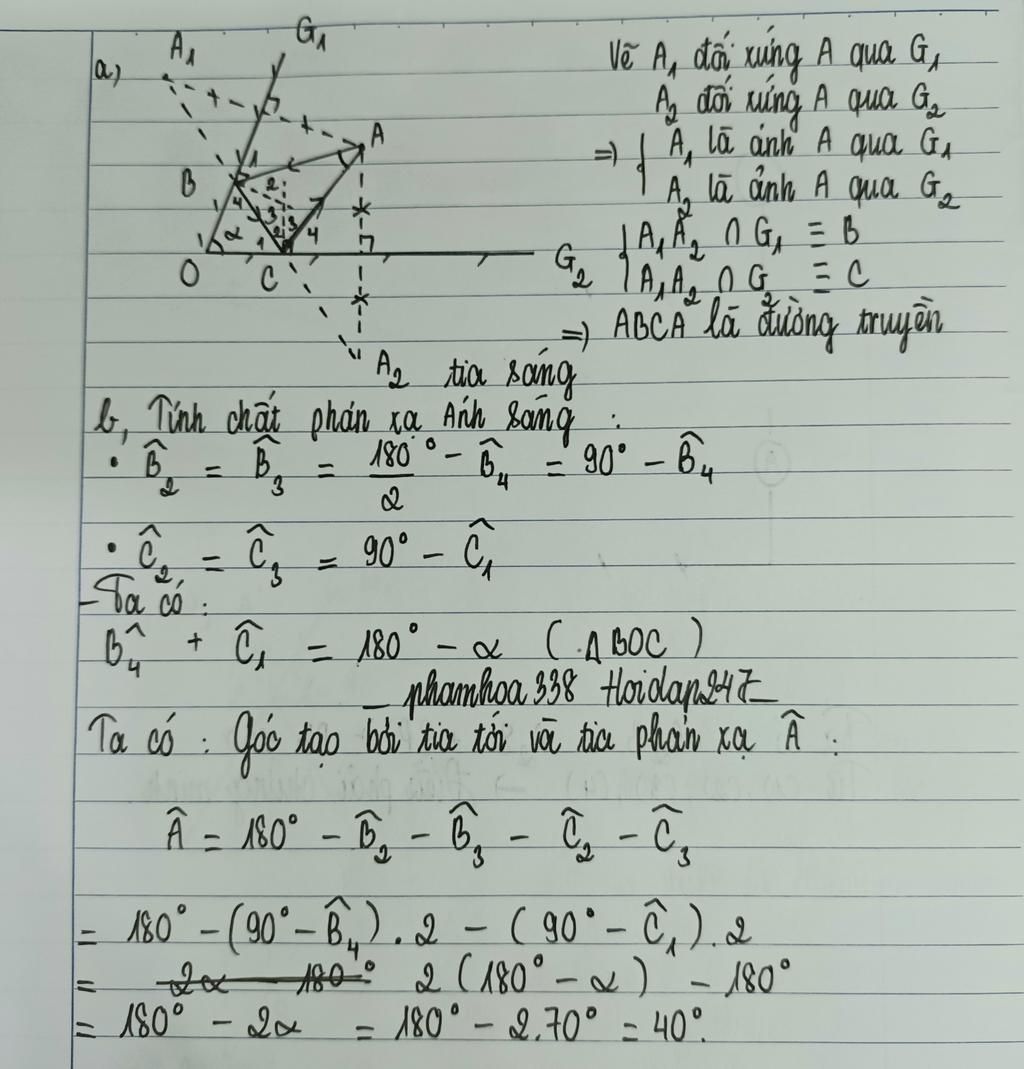 a)
A₁
G₁
A
B
1
2
3
4
α
1
2
3
4
O
C
G₂
A₂
Vẽ A₁ đối xứng A qua G₁
A₂ đối xứng A qua G₂
=) { A₁ là ảnh A qua G₁
A₂ là ảnh A qua G₂
{ A₁A₂ ∩ G₁ ≡ B
A₁A₂ ∩ G₂ ≡ C
=) ABCA là đường truyền
tia sáng
b, Tính chất phản xạ Ánh sáng :
• B̂₂ = B̂₃ = 180°/2 - B̂₄ = 90° - B̂₄
• Ĉ₂ = Ĉ₃ = 90° - Ĉ₁
- Ta có :
B̂₄ + Ĉ₁ = 180° - α (ΔBOC)
_ phamhoa338 Hoidap247_
Ta có : Góc tạo bởi tia tới và tia phản xạ Â :
Â = 180° - B̂₂ - B̂₃ - Ĉ₂ - Ĉ₃
= 180° - (90° - B̂₄) . 2 - (90° - Ĉ₁) . 2
= 2α - 180° 2 (180° - α) - 180°
= 180° - 2α = 180° - 2.70° = 40°.